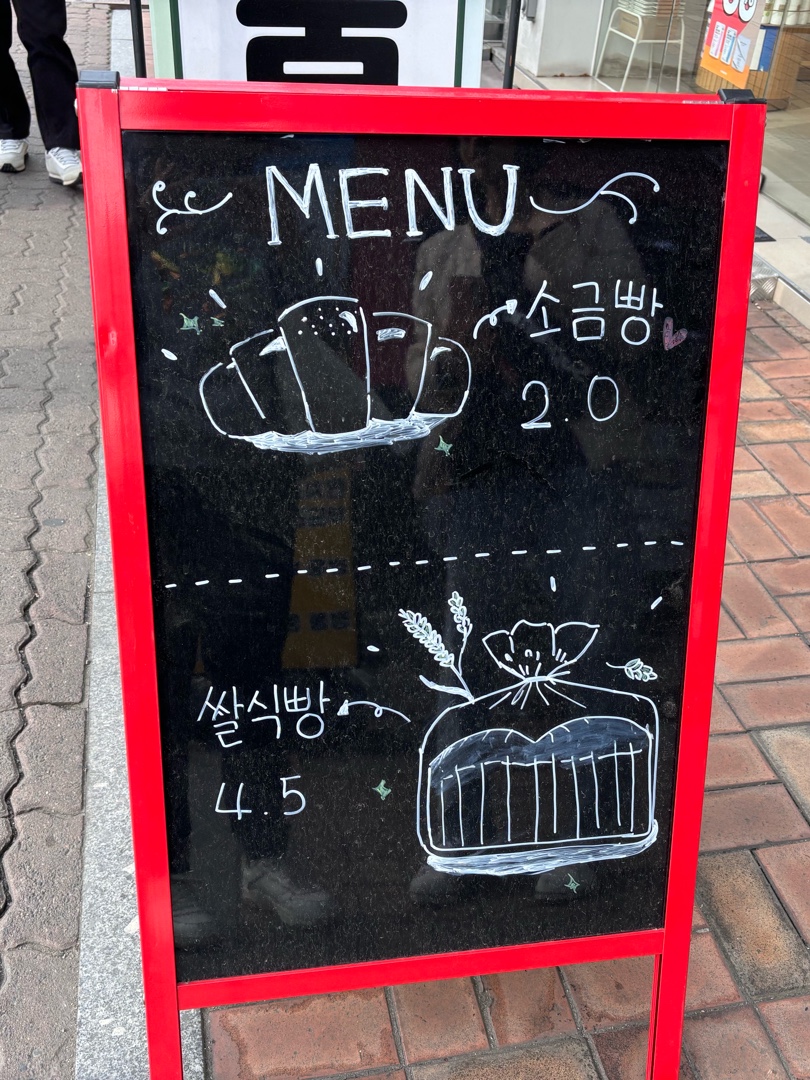 MENU
소금빵
2.0
쌀식빵
4.5